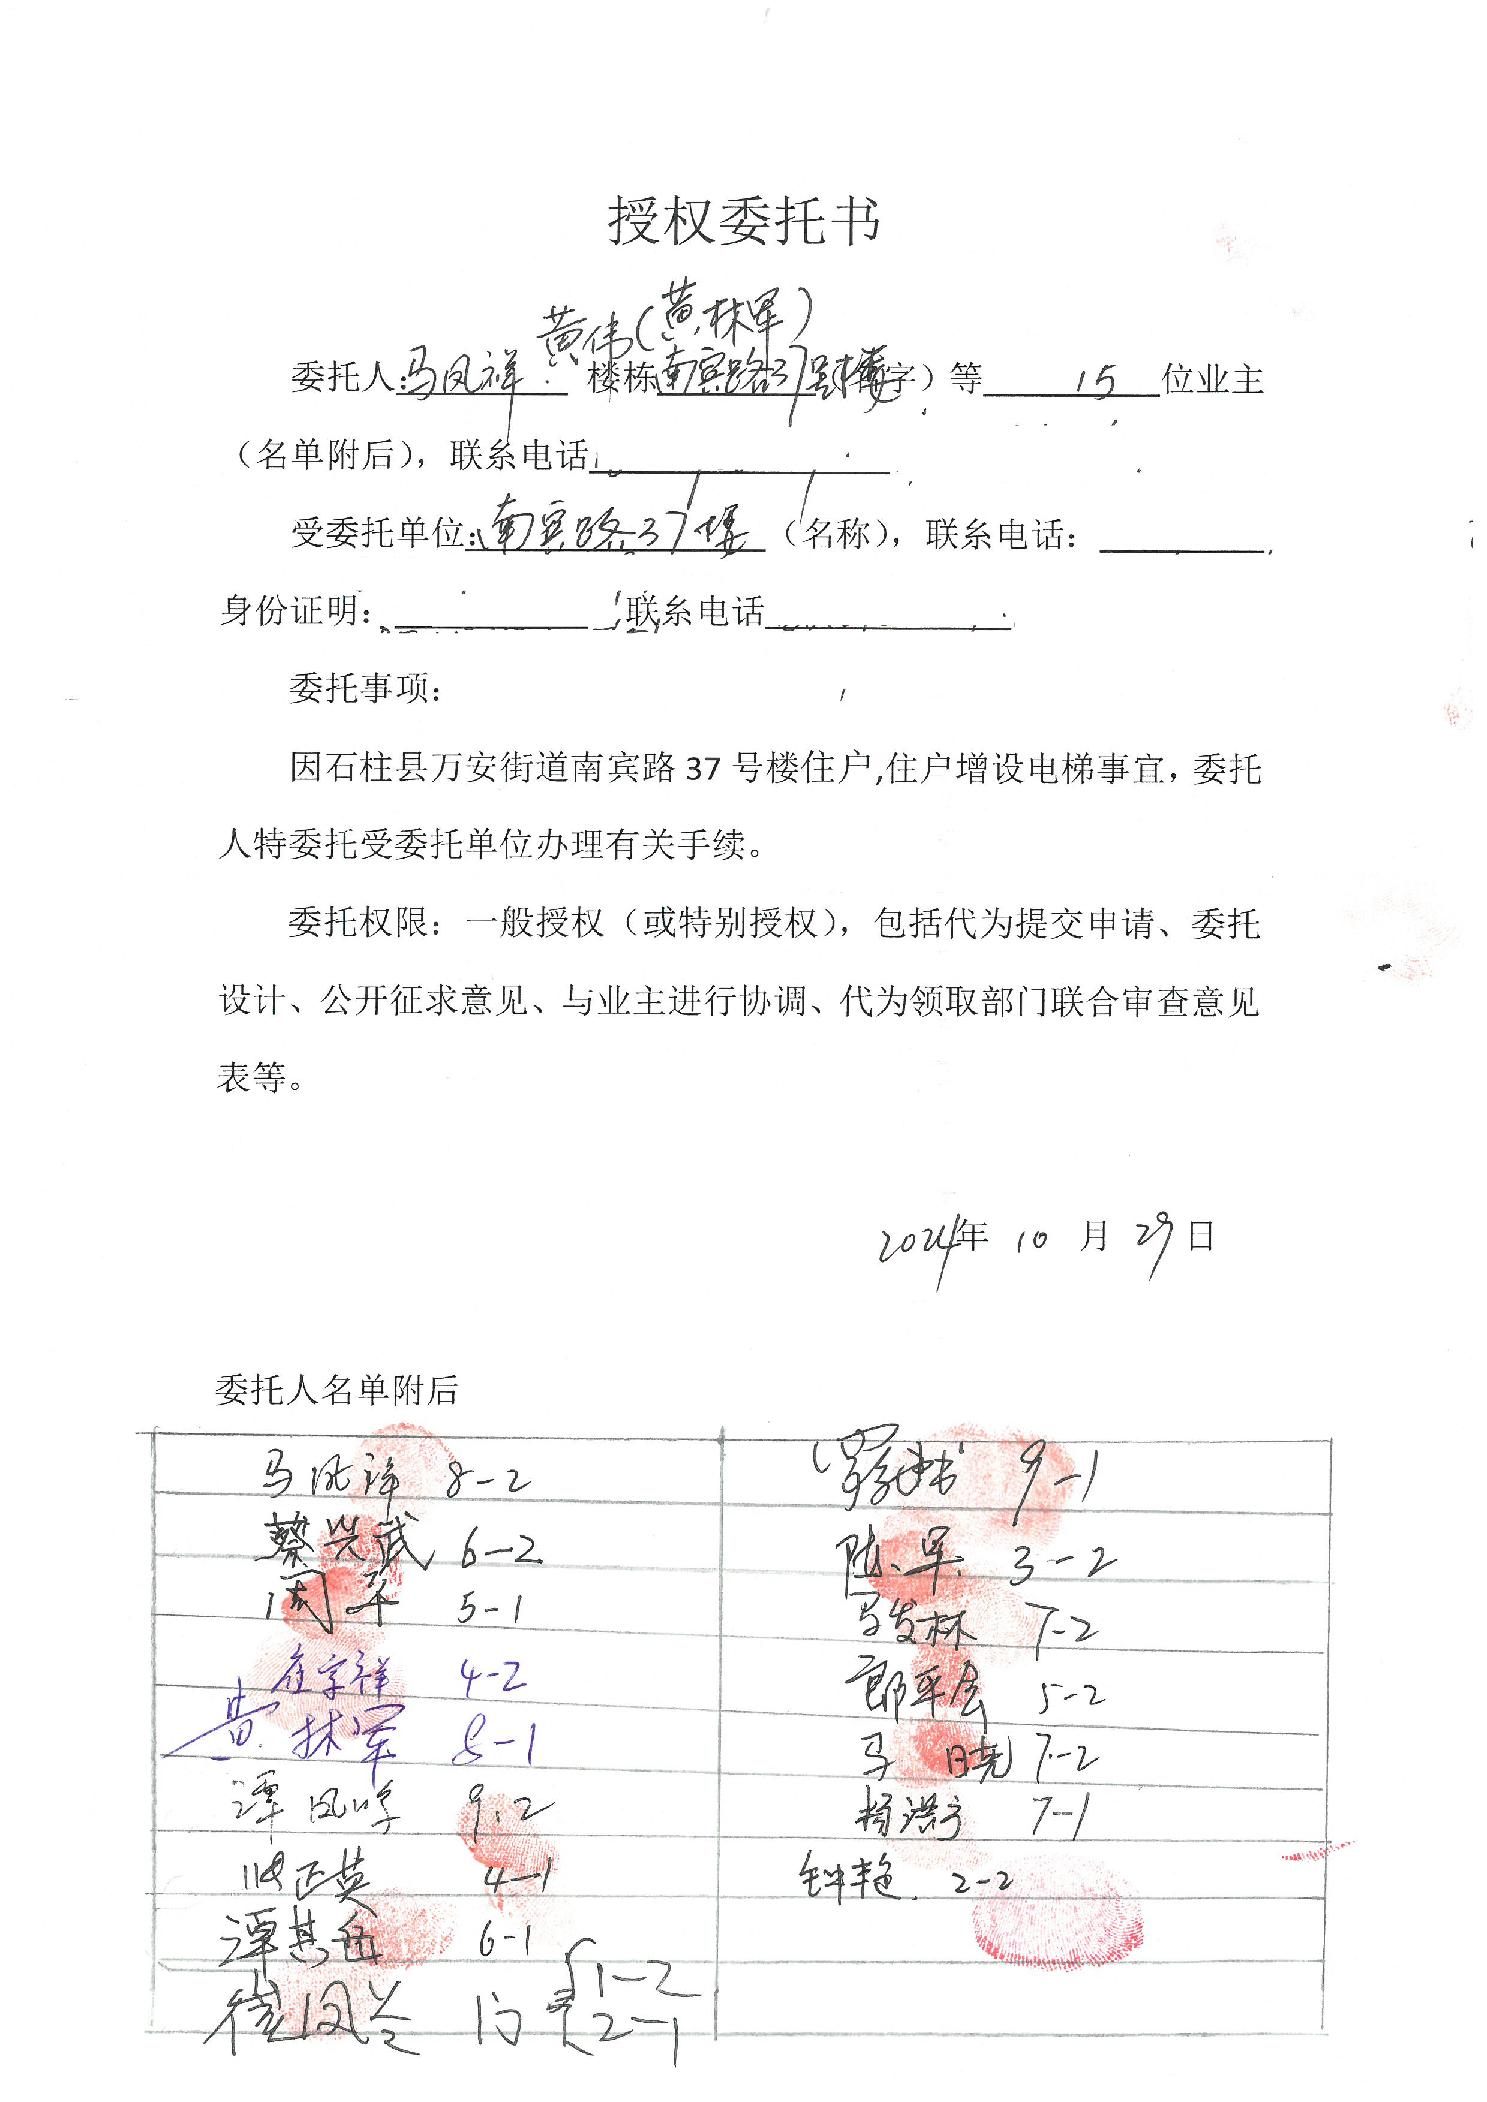 授权委托书
黄伟(黄林军)
委托人:马凤祥 楼栋南宾路37号楼字）等 15 位业主
（名单附后），联系电话
受委托单位:南宾路37楼（名称），联系电话：
身份证明： 联系电话
委托事项：
因石柱县万安街道南宾路 37 号楼住户,住户增设电梯事宜，委托
人特委托受委托单位办理有关手续。
委托权限：一般授权（或特别授权），包括代为提交申请、委托
设计、公开征求意见、与业主进行协调、代为领取部门联合审查意见
表等。
2024年 10 月 29 日
委托人名单附后
马凤祥 8-2
蔡兴武 6-2
周平 5-1
4-2
黄林军 8-1
谭凤 9.2
正英 4-1
谭其 6-1
凤兰 门 1-2
2-1
罗 书 9-1
陈军 3-2
马发林 7-2
郎平 5-2
马晓 7-2
杨洪 7-1
钟艳 2-2